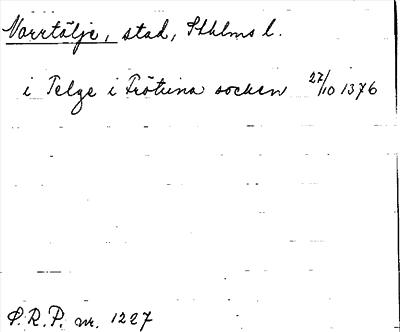 Norrtälje, stad, Sthlms l.
i Telge i Frötuna socken 27/10 1376
S.R.P. nr. 1227